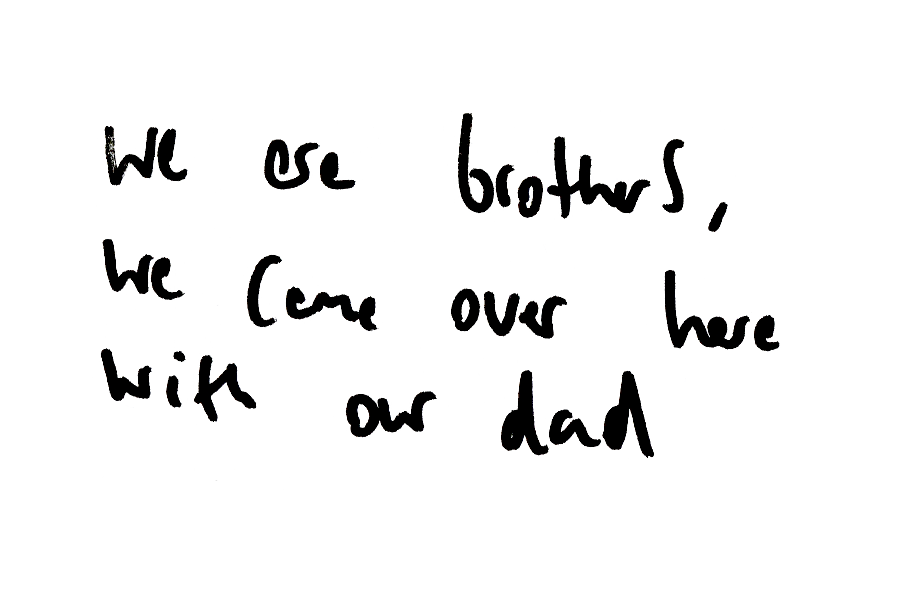 We are brothers,
We came over here
with our dad